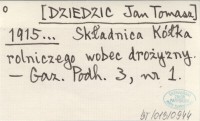 0 [DZIEDZIC Jan Tomasz]
1915... Składnica Kółka
rolniczego wobec drożyzny.
— Gaz. Podh. 3, nr 1.
BJ/013/0944